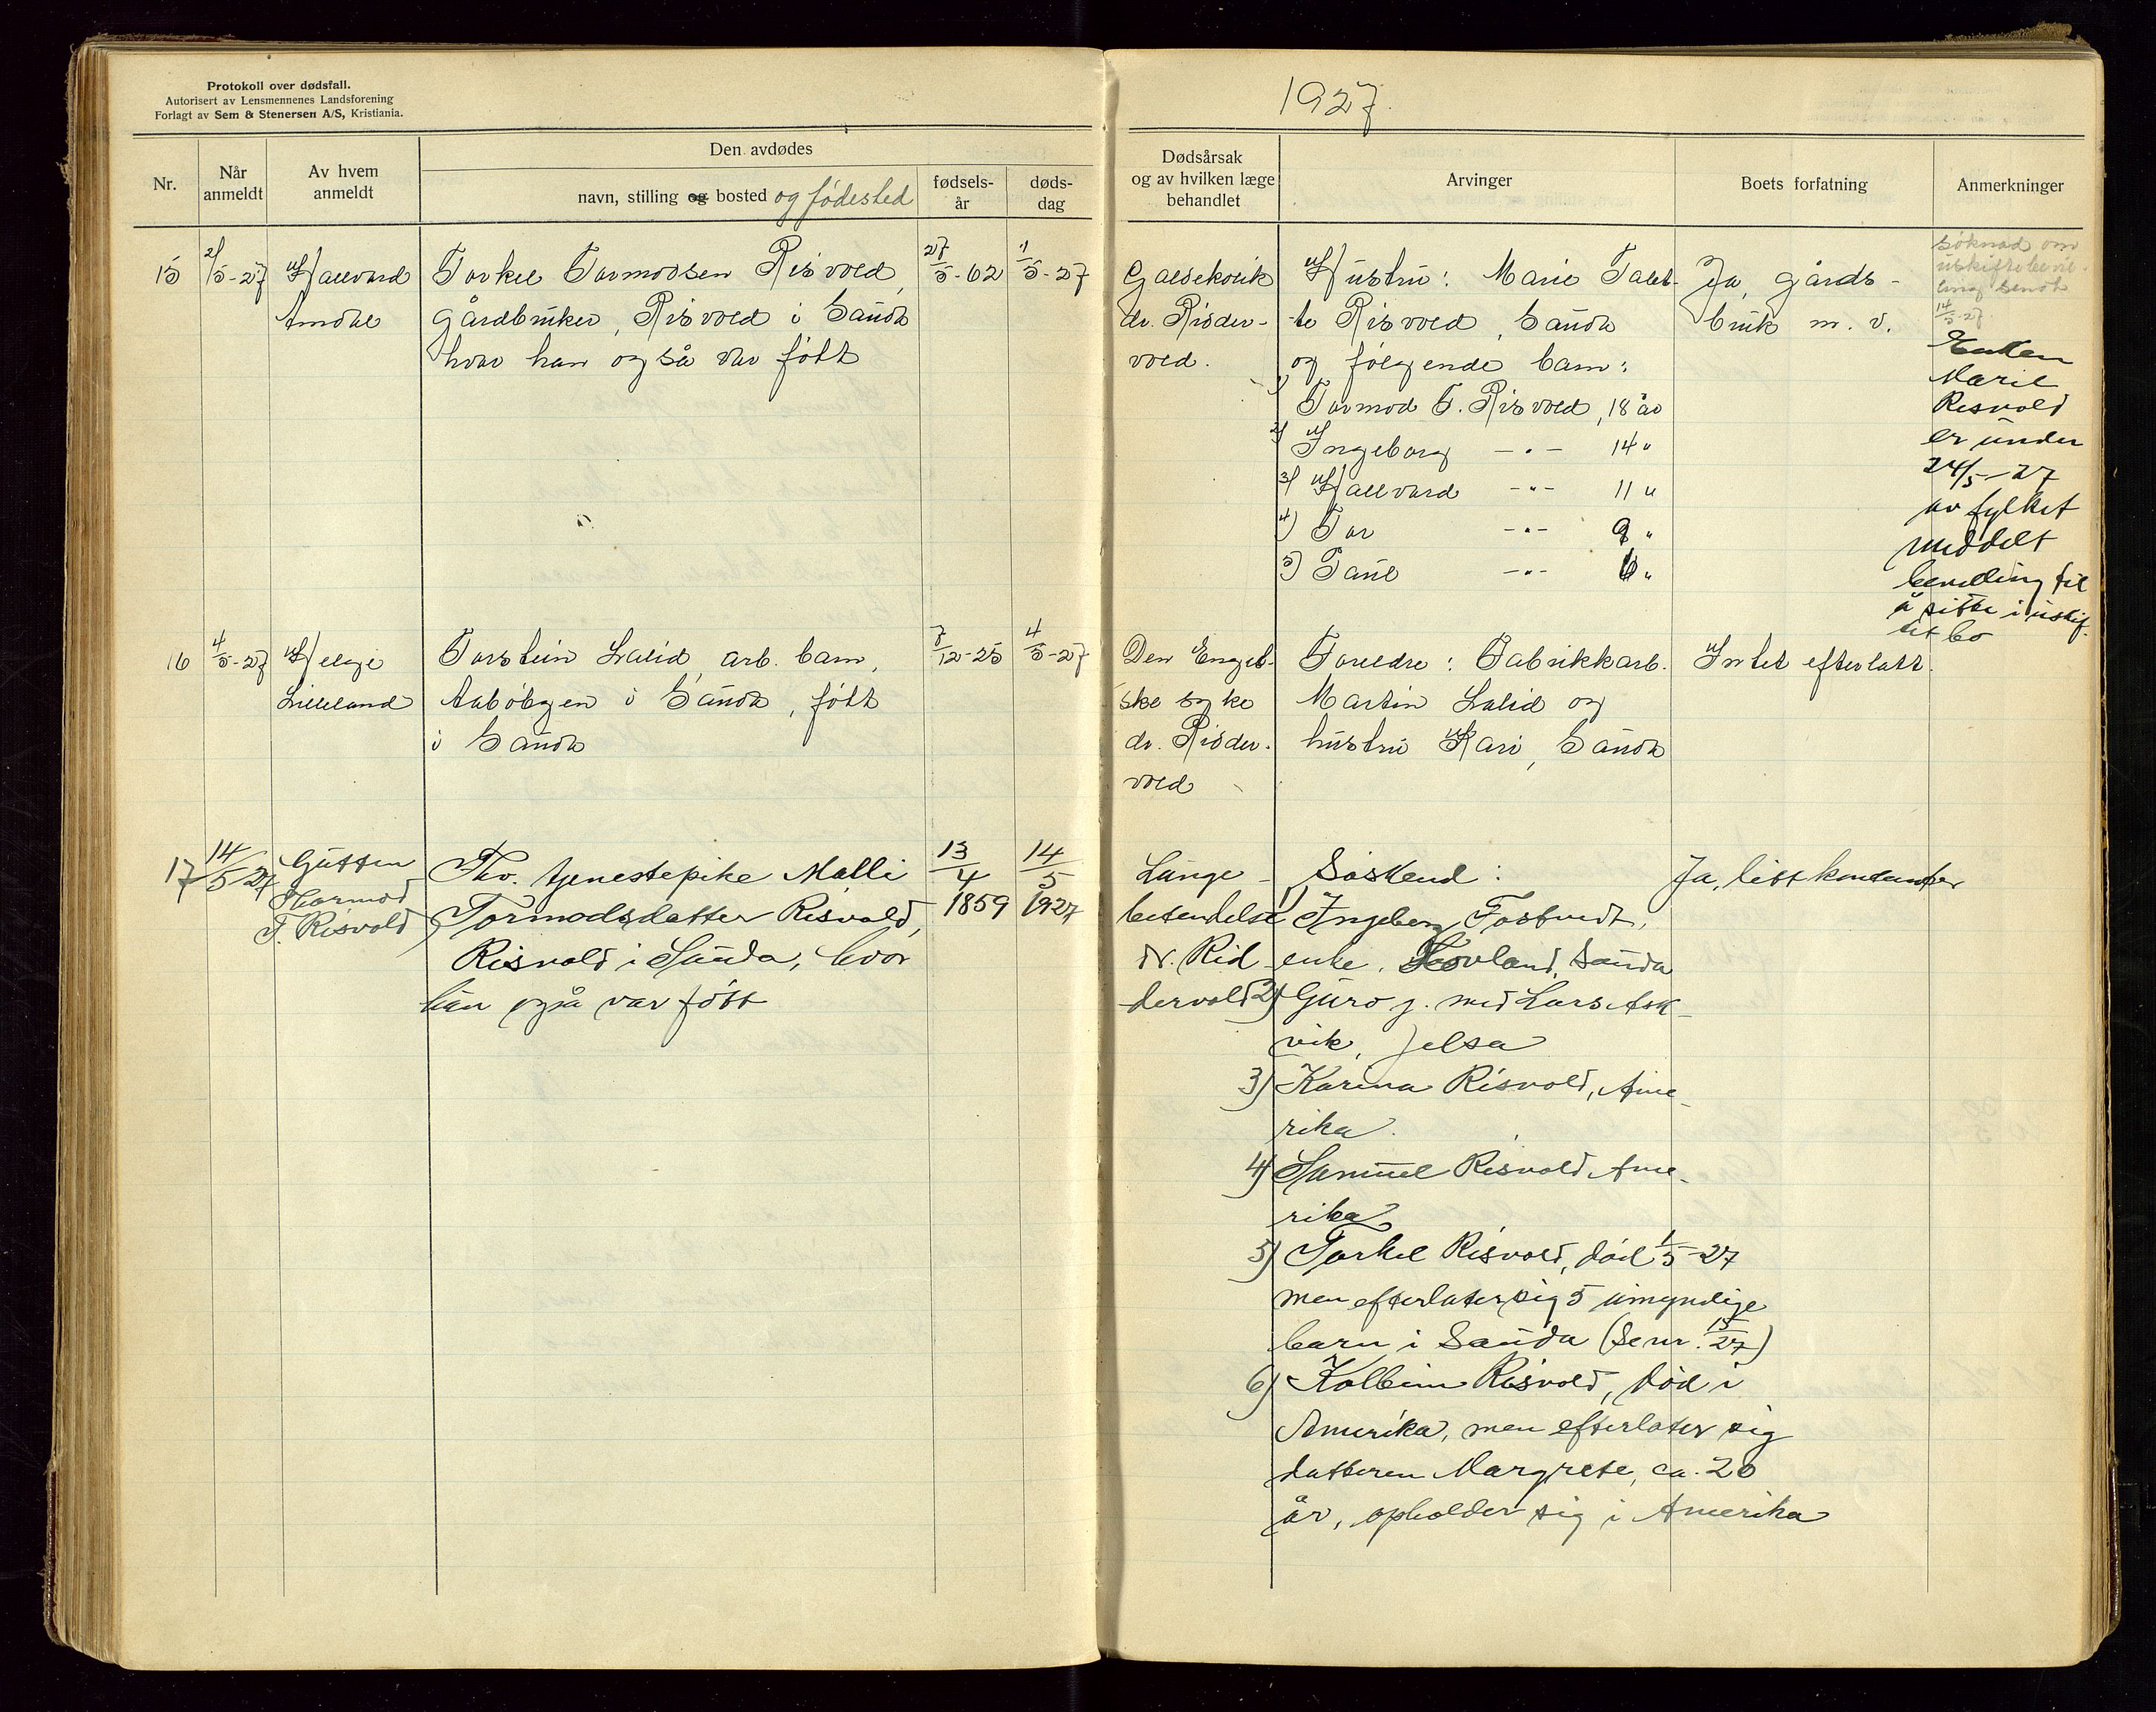 Protokoll over dødsfall.
Autorisert av Lensmennenes Landsforening
Forlagt av Sem & Stenersen A/S, Kristiania.
Nr.
Når
anmeldt
Av hvem
anmeldt
Den avdødes
navn, stilling og bosted og fødested
fødsels-
år
døds-
dag
15
2/5-27
Hallvard
Amdal
Torkel Tormodsen Risvold,
gårdbruker, Risvold i Sauda
hvor han også var født
27/5-62
1/5-27
16
4/5-27
Helge
Lilleland
Torstein Lalid, arb. barn,
Aabøbyen i Sauda, født
i Sauda
7/12-25
4/5-27
17
14/5/27
Gutten
Thormod
T. Risvold
Fhv. tjenestepike Malli
Tormodsdatter Risvold,
Risvold i Sauda, hvor
hun også var født
13/4
1859
14/5
1927
1927.
Dødsårsak
og av hvilken læge
behandlet
Arvinger
Boets forfatning
Anmerkninger
Galdekolik
dr. Ridder-
vold.
Hustru: Marie
Risvold, Sauda
og følgende barn:
1) Tormod T. Risvold, 18 år
2) Ingeborg —"— 14 "
3) Hallvard —"— 11 "
4) Tor —"— 9 "
5) Paul —"— 6 "
Ja, gårds-
bruk m. v.
Søknad om
uskiftebevil-
ling sendt
14/5-27
Enken
Marie
Risvold
er under
24/5-27
av fylket
meddelt
bevilling til
å sitte i uskif-
tet bo
Den Engel-
ske syke
dr. Ridder-
vold
Foreldre: Fabrikkarb.
Martin Lalid og
hustru Kari, Sauda
Intet efterlatt.
Lunge-
betendelse
dr. Rid-
dervold
Søskend:
1) Ingeborg Fostvedt,
enke, Hovland, Sauda
2) Guro g. med Lars Ask-
vik, Jelsa
3) Karina Risvold, Ame-
rika.
4) Samuel Risvold, Ame-
rika
5) Torkel Risvold, død 1/5-27
men efterlater sig 5 umyndige
barn i Sauda (Se nr. 15/27)
6) Kolbein Risvold, død i
Amerika, men efterlater sig
datteren Margrete, ca. 20
år, opholder sig i Amerika
Ja, litt kontanter